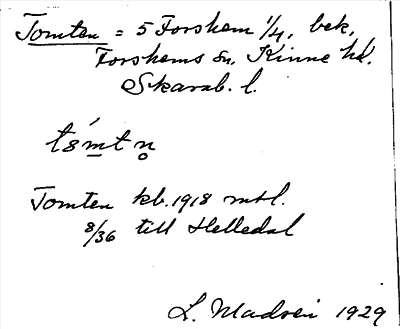 Tomten = 5 Forshem 1/4, bek,
Forshems sn, Kinne hd.
Skarab. l.
Tomten kb. 1918 mtl.
8/36 till Helledal
L. 1929